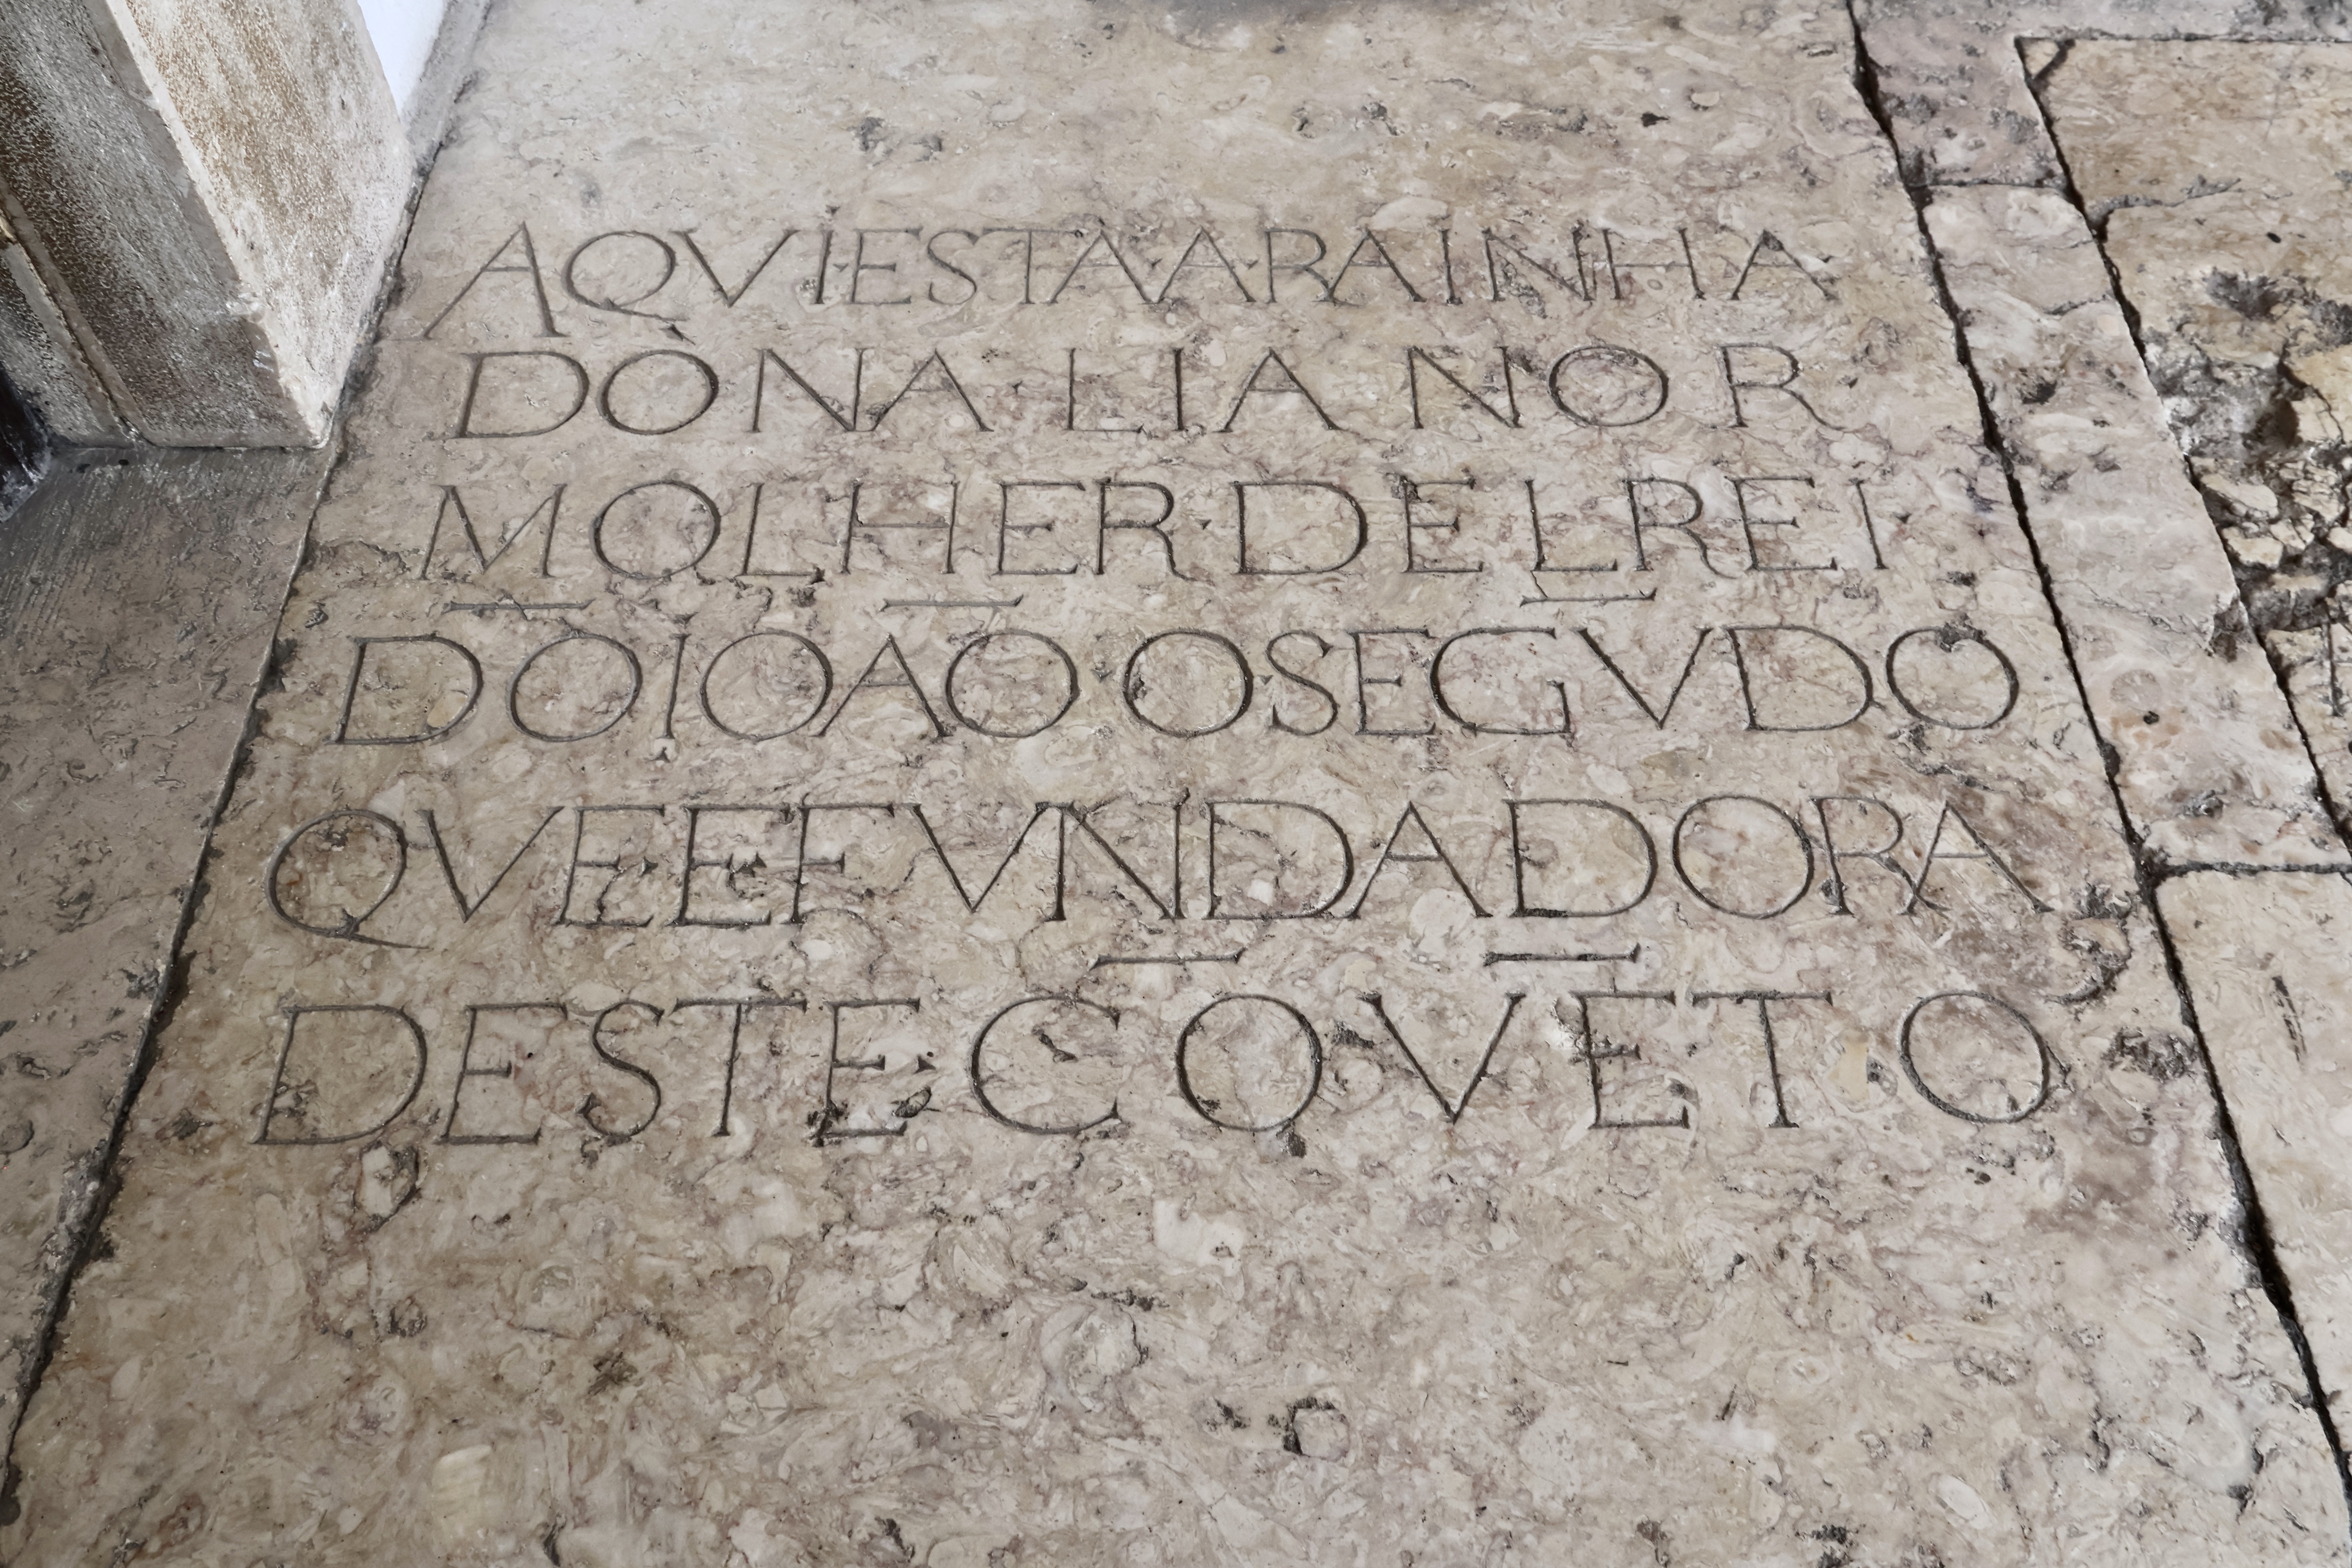 AQVI·ESTA·A·RAINHA
DONA·LIANOR
MOLHER·DELREI
DŌ IOÃO·O·SEGV̄DO
QVE·E·FVNDADORA
DESTE·CŌVĒTO